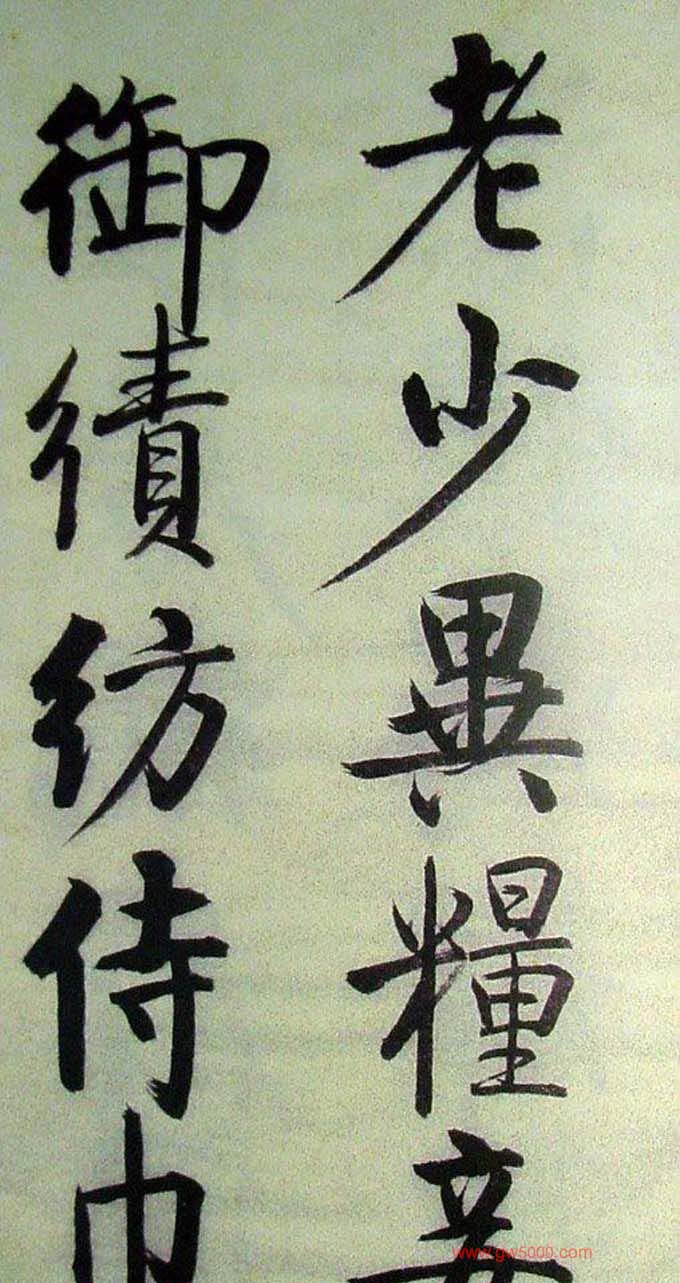 老少異糧妾
御績紡侍巾
www.gw5000.com